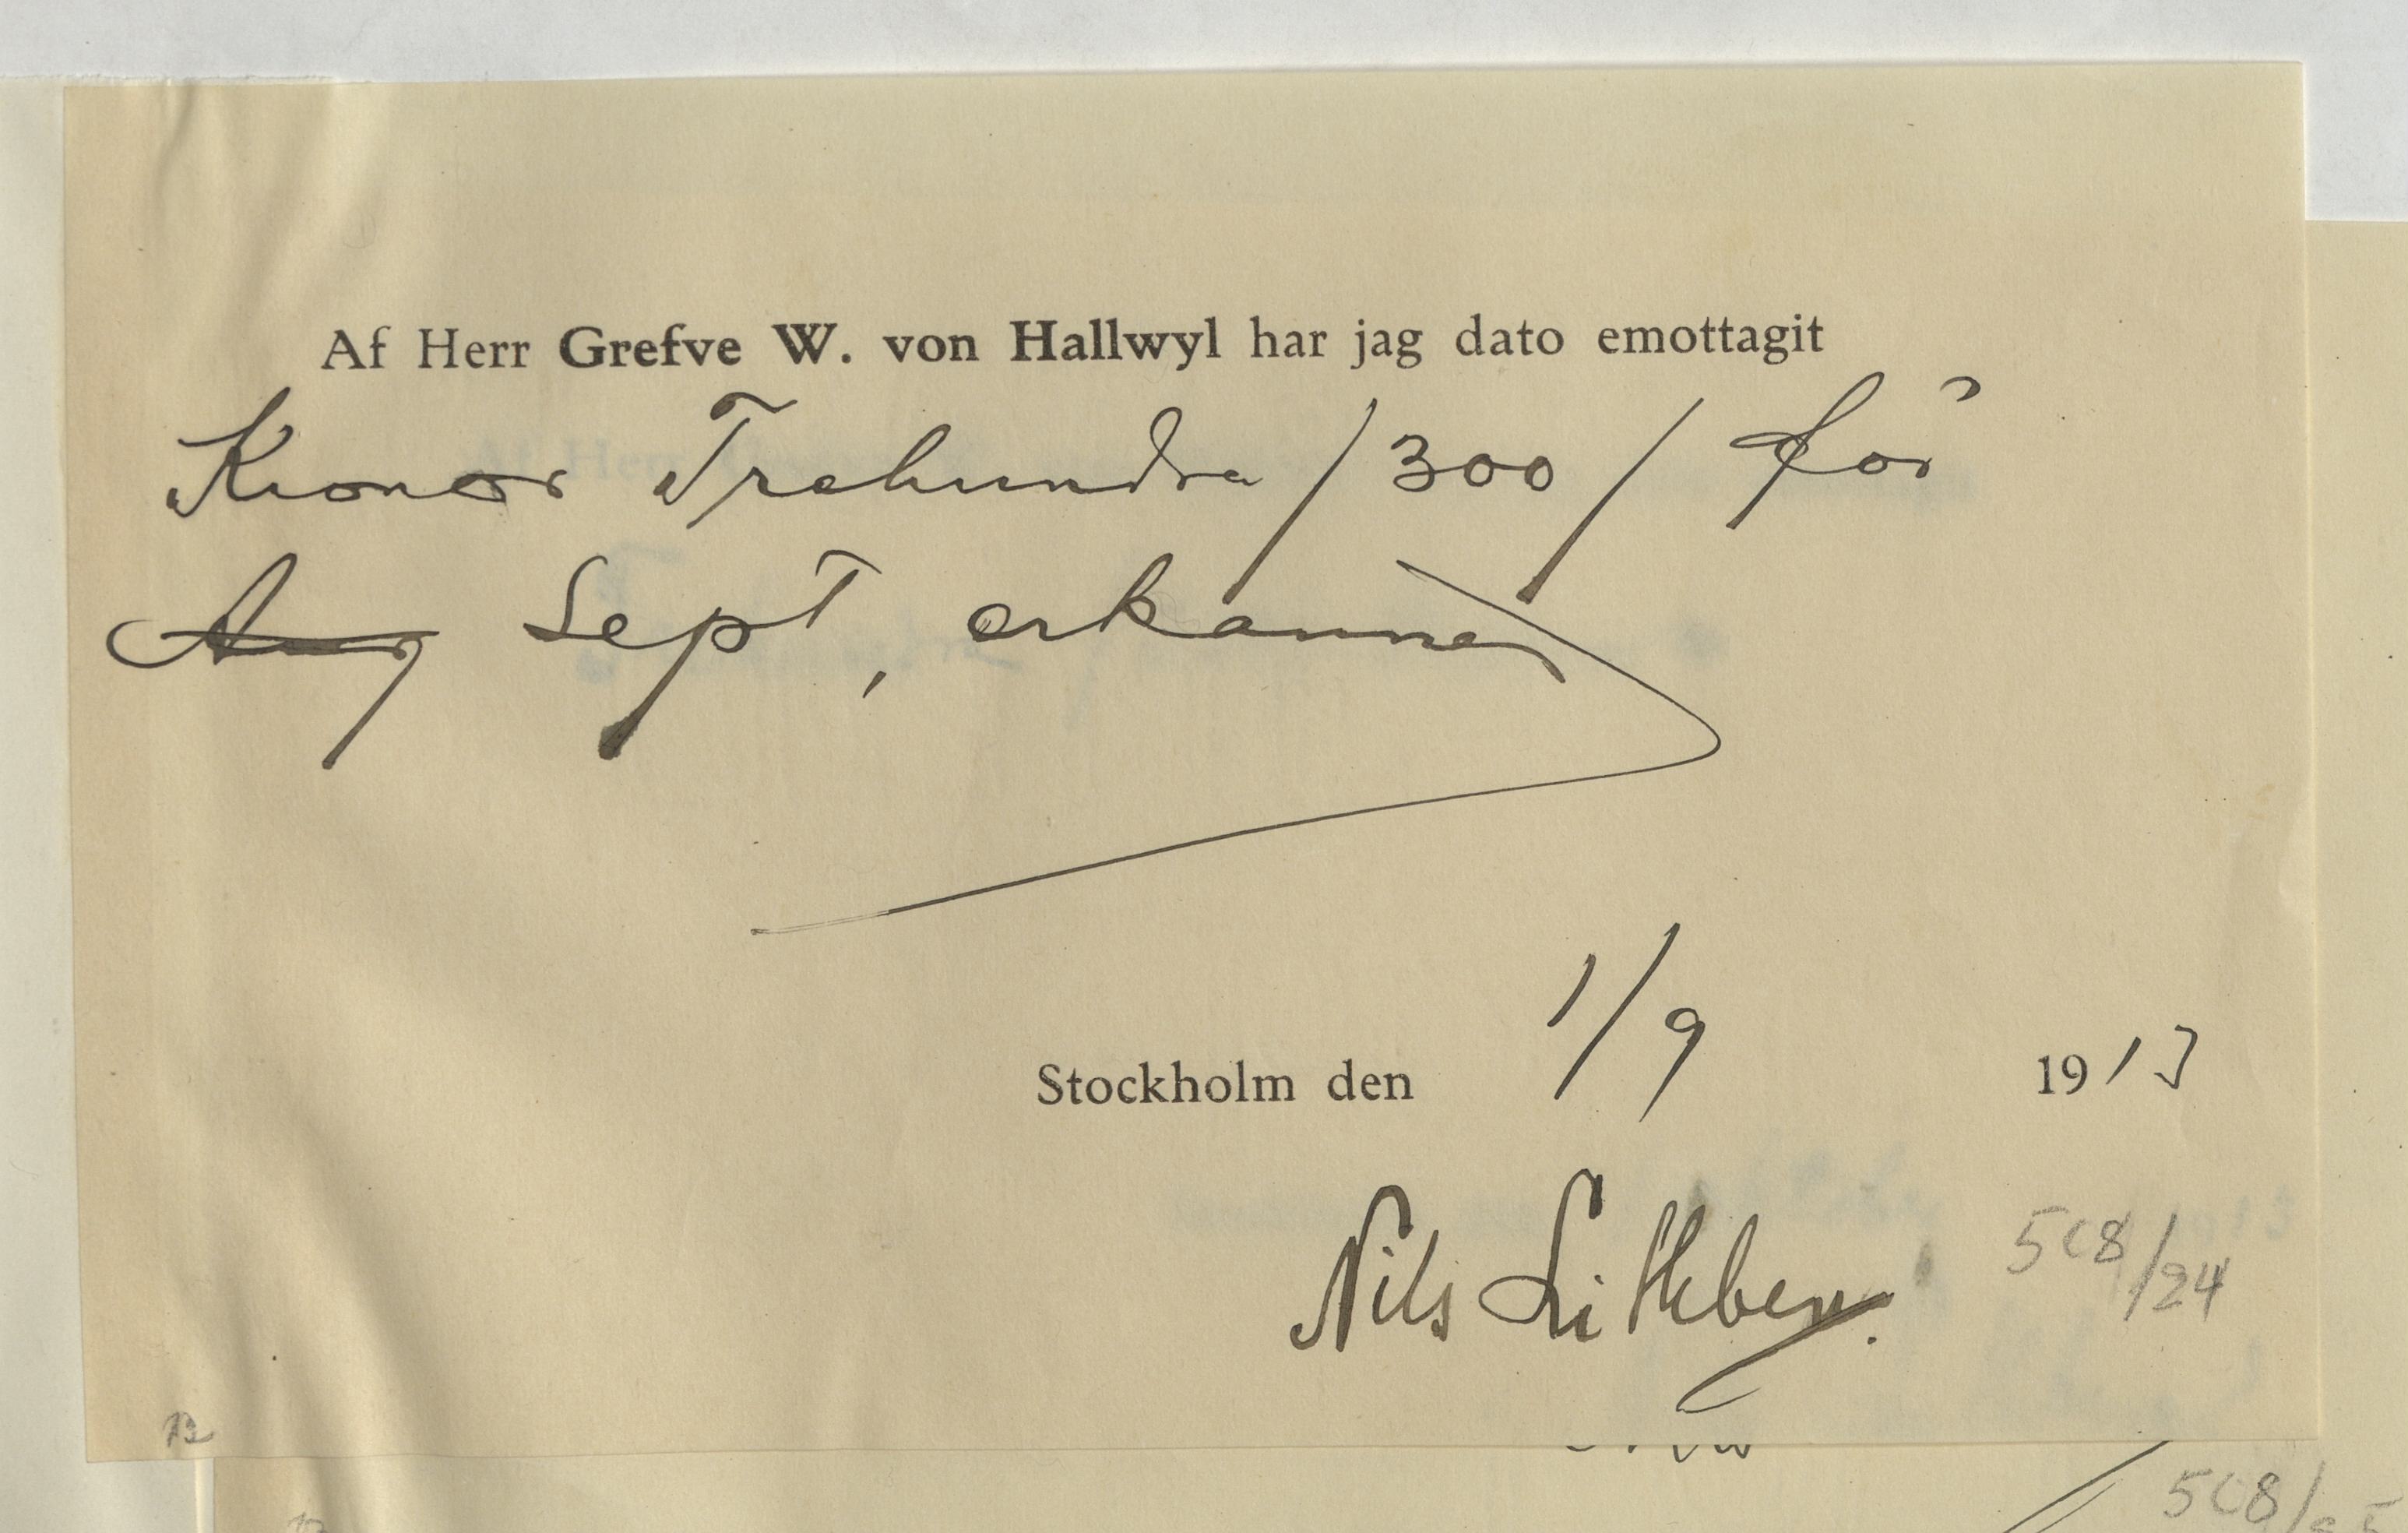 Af Herr Grefve W. von Hallwyl har jag dato emottagit
Kronor Trehundra /300/ för
Aug Sept, erkännes
Stockholm den 1/9 1913
Nils Lithberg.
508/24
508/25